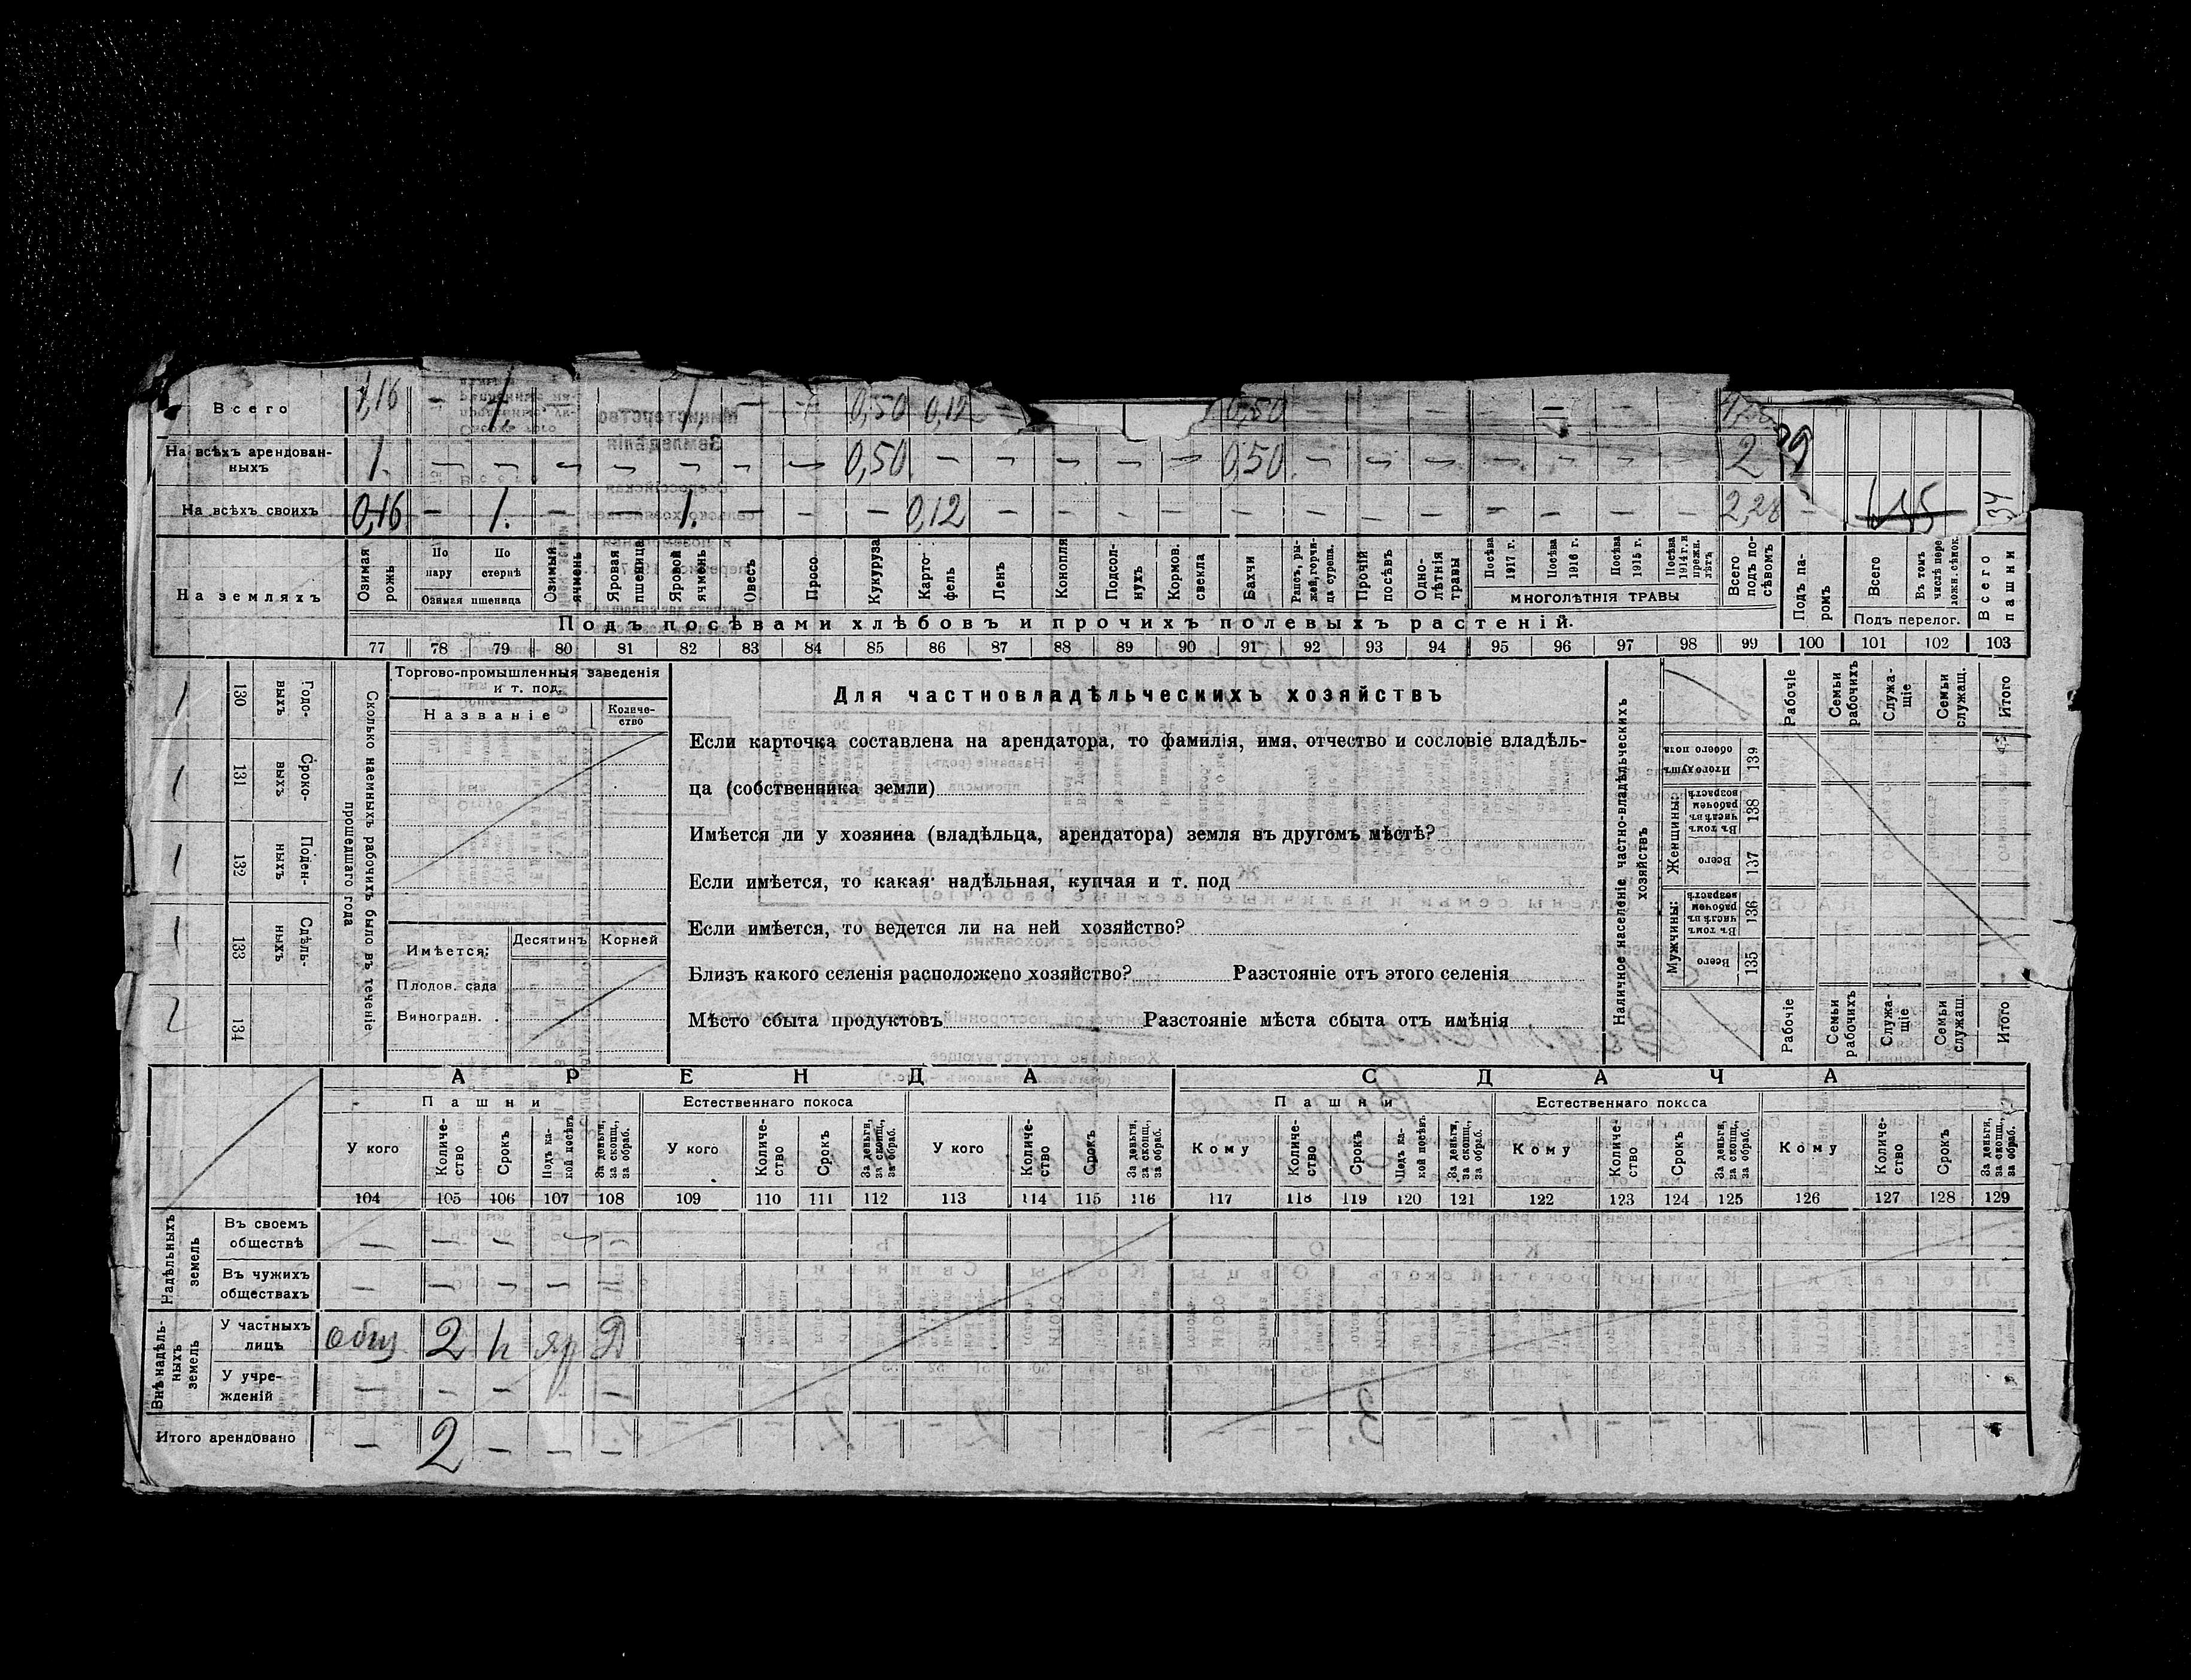 Всего 1,16 – 1. – – 1. – – 0,50 0,12 – 0,50 – – – – – – –
На всѣхъ арендован-
ныхъ 1. – – – – – – – 0,50 – – – – – 0,50 – – – – – – – 2
На всѣхъ своихъ 0,16 – 1. – – 1. – – – 0,12 – – – – – – – – – – – – 2,28 – 34
На земляхъ
Озимая рожь
По пару
По стернѣ
Озимая пшеница
Озимый ячмень
Яровая пшеница
Яровой ячмень
Овесъ
Просо
Кукуруза
Карто-
фель
Ленъ
Конопля
Подсол-
нухъ
Кормов. свекла
Бахчи
Рапсъ, ры-
жей, горчи-
ца сурепа.
Прочій посѣвъ
Одно-
лѣтнія травы
Посѣва 1917 г.
Посѣва 1916 г.
Посѣва 1915 г.
Посѣва 1914 г. и прежн. лѣтъ
МНОГОЛѢТНІЯ ТРАВЫ
Всего подъ по-
сѣвомъ
Подъ па-
ромъ
Всего
Въ томъ числѣ пере ложн. сѣнок.
Подъ перелог.
Всего пашни
Подъ посѣвами хлѣбовъ и прочихъ полевыхъ растеній.
77 78 79 80 81 82 83 84 85 86 87 88 89 90 91 92 93 94 95 96 97 98 99 100 101 102 103
1 130 Годо-
выхъ
1 131 Сроко-
выхъ
1 132 Поден-
ныхъ
1 133 Сдѣль-
ныхъ
2 134
Сколько наемныхъ рабочихъ было въ теченіе
прошедшаго года
Торгово-промышленныя заведенія
и т. под.
Названіе
Количе-
ство
Имѣется:
Десятинъ Корней
Плодов. сада
Виноградн. .
Для частновладѣльческихъ хозяйствъ
Если карточка составлена на арендатора, то фамилія, имя, отчество и сословіе владѣль-
ца (собственника земли)
Имѣется ли у хозяина (владѣльца, арендатора) земля въ другомъ мѣстѣ?
Если имѣется, то какая: надѣльная, купчая и т. под
Если имѣется, то ведется ли на ней хозяйство?
Близъ какого селенія расположено хозяйство? Разстояніе отъ этого селенія
Мѣсто сбыта продуктовъ Разстояніе мѣста сбыта отъ имѣнія
Наличное населеніе частно-владѣльческихъ
хозяйствъ
Мужчины:
Всего 135
Въ томъ числѣ въ рабочемъ возрастѣ 136
Женщины:
Всего 137
Въ томъ числѣ въ рабочемъ возрастѣ 138
Итого душъ обоего пола 139
Рабочіе
Семьи рабочихъ
Служа-
щіе
Семьи служащ.
Итого
Рабочіе
Семьи рабочихъ
Служа-
щіе
Семьи служащ.
Итого
АРЕНДА СДАЧА
Пашни Естественнаго покоса Пашни Естественнаго покоса
У кого
Количе-
ство
Срокъ
Подъ ка-
кой посѣвъ
За деньги, за скопщ., за обраб.
У кого
Количе-
ство
Срокъ
За деньги, за скопщ., за обраб.
У кого
Количе-
ство
Срокъ
За деньги, за скопщ., за обраб.
Кому
Количе-
ство
Срокъ
Подъ ка-
кой посѣвъ
За деньги, за скопщ., за обраб.
Кому
Количе-
ство
Срокъ
За деньги, за скопщ., за обраб.
Кому
Количе-
ство
Срокъ
За деньги, за скопщ., за обраб.
104 105 106 107 108 109 110 111 112 113 114 115 116 117 118 119 120 121 122 123 124 125 126 127 128 129
Надѣльныхъ
земель
Въ своемъ
обществѣ – – – – –
Въ чужихъ
обществахъ – – – – –
Внѣ надѣль-
ныхъ
земель
У частныхъ
лицъ общ 2 h яр Д
У учре-
жденій – – – – –
Итого арендовано – 2 – – –